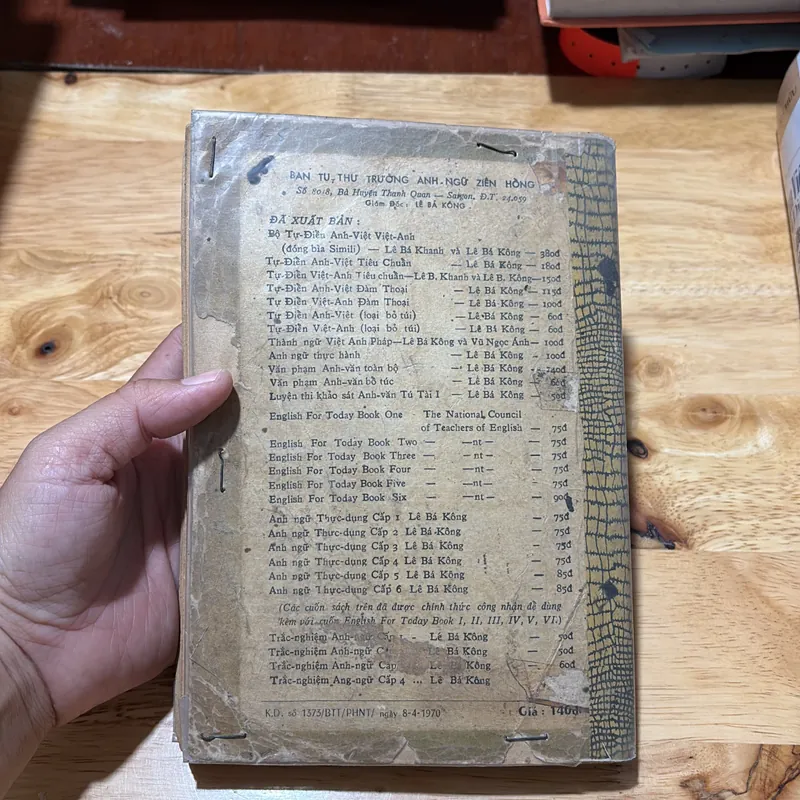 BAN TU THƯ TRƯỜNG ANH-NGỮ ZIÊN HỒNG
Số 80/8, Bà Huyện Thanh Quan — Saigon, Đ.T. 24.059
Giám Đốc: LÊ BÁ KÔNG
ĐÃ XUẤT BẢN :
Bộ Tự-Điển Anh-Việt Việt-Anh
(đóng bìa Simili) — Lê Bá Khanh và Lê Bá Kông — 380đ
Tự-Điển Anh-Việt Tiêu Chuẩn — Lê Bá Kông — 180đ
Tự-Điển Việt-Anh Tiêu chuẩn—Lê B. Khanh và Lê B. Kông—150đ
Tự Điển Anh-Việt Đàm Thoại — Lê Bá Kông — 115đ
Tự Điển Việt-Anh Đàm Thoại — Lê Bá Kông — 100đ
Tự Điển Anh-Việt (loại bỏ túi) — Lê Bá Kông — 60đ
Tự-Điển Việt-Anh (loại bỏ túi) — Lê Bá Kông — 60đ
Thành ngữ Việt Anh Pháp—Lê Bá Kông và Vũ Ngọc Ánh—100đ
Anh ngữ thực hành — Lê Bá Kông — 100đ
Văn phạm Anh-văn toàn bộ — Lê Bá Kông — 140đ
Văn phạm Anh-văn bổ túc — Lê Bá Kông —
Luyện thi khảo sát Anh-văn Tú Tài I — Lê Bá Kông — 50đ
English For Today Book One The National Council
of Teachers of English — 75đ
English For Today Book Two — —nt— — 75đ
English For Today Book Three — —nt— — 75đ
English For Today Book Four — —nt— — 75đ
English For Today Book Five — —nt— — 75đ
English For Today Book Six — —nt— — 90đ
Anh ngữ Thực-dụng Cấp 1 Lê Bá Kông — 75đ
Anh ngữ Thực-dụng Cấp 2 Lê Bá Kông — 75đ
Anh ngữ Thực-dụng Cấp 3 Lê Bá Kông — 75đ
Anh ngữ Thực-dụng Cấp 4 Lê Bá Kông — 75đ
Anh ngữ Thực-dụng Cấp 5 Lê Bá Kông — 85đ
Anh ngữ Thực-dụng Cấp 6 Lê Bá Kông — 85đ
(Các cuốn sách trên đã được chính thức công nhận để dùng
kèm với cuốn English For Today Book I, II, III, IV, V, VI.)
Trắc-nghiệm Anh-ngữ Cấp 1 - Lê Bá Kông — 50đ
Trắc-nghiệm Anh-ngữ Lê Bá Kông — 50đ
Trắc-nghiệm Anh-ngữ Cấp Lê Bá Kông — 60đ
Trắc-nghiệm Ang-ngữ Cấp 4 ... Lê Bá Kông
K.D. số 1373/BTT/PHNT/ ngày 8-4-1970 Giá : 140đ